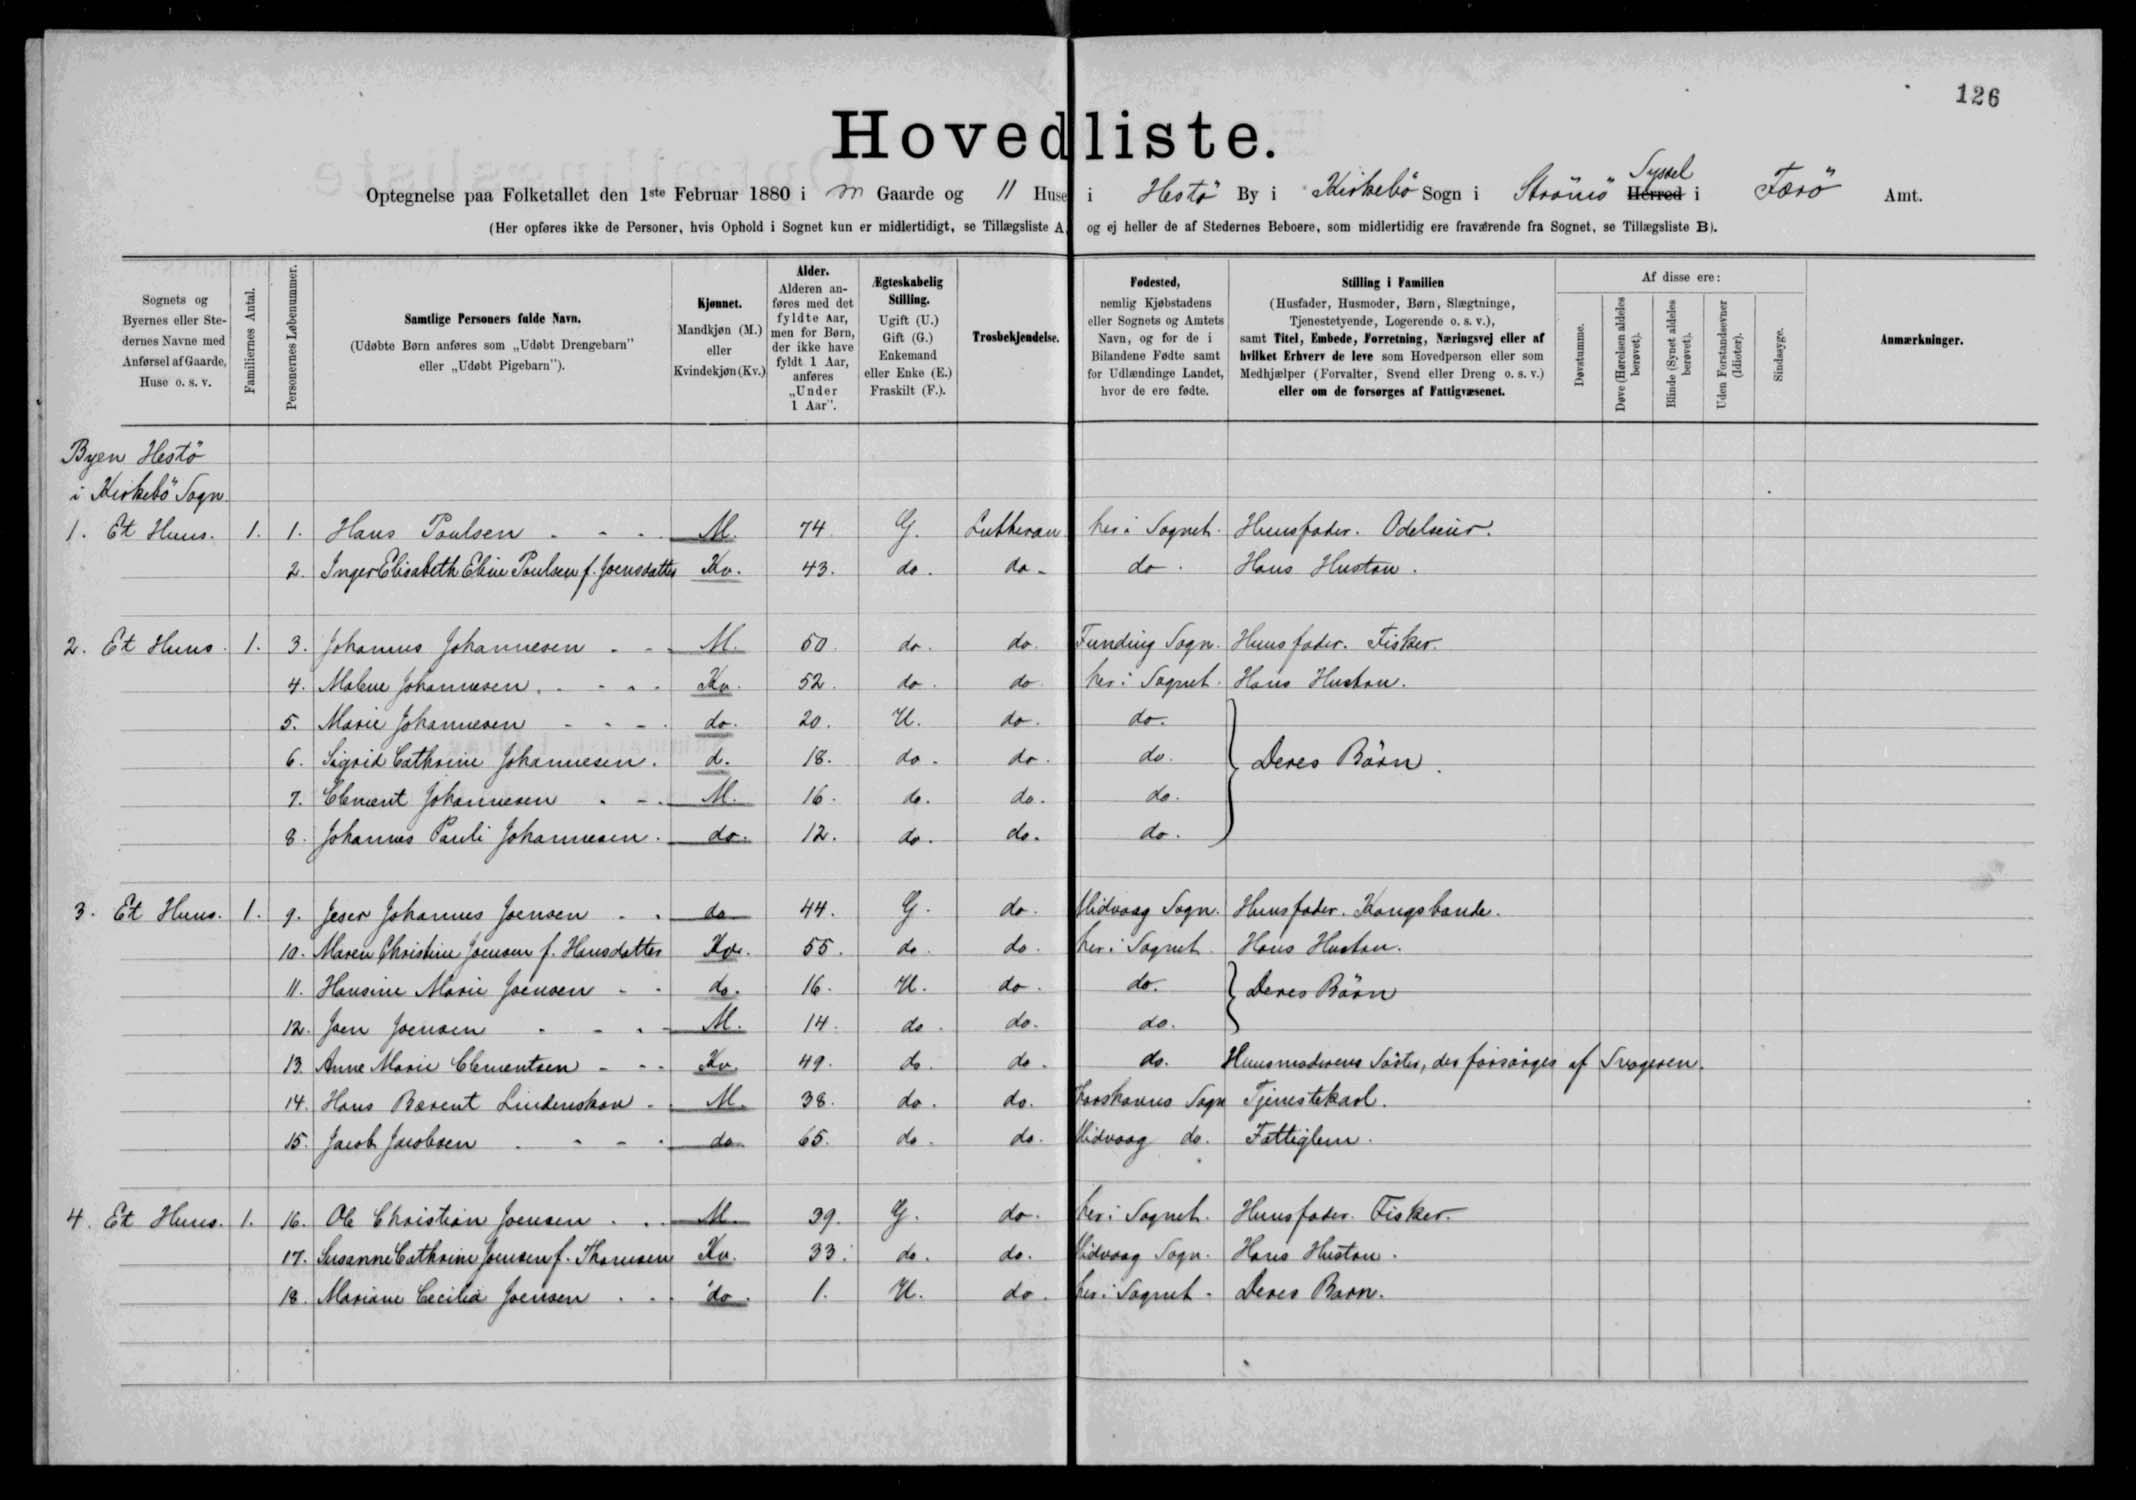 126
Hovedliste.
Optegnelse paa Folketallet den 1ste Februar 1880 i m Gaarde og 11 Huse i Hestö By i Kirkebö Sogn i Strömö Syssel Herred i Færö Amt.
(Her opføres ikke de Personer, hvis Ophold i Sognet kun er midlertidigt, se Tillægsliste A, og ej heller de af Stedernes Beboere, som midlertidig ere fraværende fra Sognet, se Tillægsliste B).
Sognets og Byernes eller Stedernes Navne med Anførsel af Gaarde, Huse o. s. v.
Familiernes Antal.
Personernes Løbenummer.
Samtlige Personers fulde Navn.
(Udøbte Børn anføres som „Udøbt Drengebarn" eller „Udøbt Pigebarn").
Kjønnet.
Mandkjøn (M.) eller Kvindekjøn (Kv.)
Alder.
Alderen anføres med det fyldte Aar, men for Børn, der ikke have fyldt 1 Aar, anføres „Under 1 Aar".
Ægteskabelig Stilling.
Ugift (U.) Gift (G.) Enkemand eller Enke (E.) Fraskilt (F.).
Trosbekjendelse.
Fødested,
nemlig Kjøbstadens eller Sognets og Amtets Navn, og for de i Bilandene Fødte samt for Udlændinge Landet, hvor de ere fødte.
Stilling i Familien
(Husfader, Husmoder, Børn, Slægtninge, Tjenestetyende, Logerende o. s. v.), samt Titel, Embede, Forretning, Næringsvej eller af hvilket Erhverv de leve som Hovedperson eller som Medhjælper (Forvalter, Svend eller Dreng o. s. v.) eller om de forsørges af Fattigvæsenet.
Af disse ere:
Døvstumme.
Døve (Hørelsen aldeles berøvet).
Blinde (Synet aldeles berøvet).
Uden Forstandsevner (Idioter).
Sindssyge.
Anmærkninger.
Byen Hestö
i Kirkebö Sogn.
1. Et Huus. 1. 1. Hans Poulsen M. 74 G. Lutheran her i Sognet. Huusfader. Odelseier.
2. Inger Elisabeth Eline Poulsen f. Joensdatter Kv. 43. do. do. do. Hans Hustou.
2. Et Huus. 1. 3. Johannes Johannesen M. 50. do. do. Funding Sogn. Huusfader. Fisker.
4. Malene Johannesen. Kv. 52. do. do. her i Sognet. Hans Hustou.
5. Marie Johannesen do. 20. U. do. do.
6. Sigrid Cathrine Johannesen. d. 18. do. do. do. Deres Börn.
7. Clement Johannesen M. 16. do. do. do.
8. Johannes Pauli Johannesen. do. 12. do. do. do.
3. Et Huus. 1. 9. Jeser Johannes Joensen do 44. G. do. Midvaag Sogn. Huusfader. Kongsbonde.
10. Maren Christine Joensen f. Hansdatter Kv. 55. do. do. her i Sognet. Hans Hustou.
11. Hansine Marie Joensen do. 16. U. do. do. Deres Börn
12. Joen Joensen M. 14. do. do. do.
13. Anne Marie Clementsen Kv. 49. do. do. do. Huusmoderens Söster, der forsörges af Svogeren.
14. Hans Bærent Lindenskov M. 38. do. do. Thorshavns Sogn Tjenestekarl.
15. Jacob Jacobsen do. 65. do. do. Midvaag do. Fattiglem.
4. Et Huus. 1. 16. Ole Christian Joensen M. 39. G. do. her i Sognet. Huusfader. Fisker.
17. Susanne Cathrine Joensen f. Thomsen Kv. 33. do. do. Midvaag Sogn. Hans Hustou.
18. Mariane Cecilia Joensen do. 1. U. do. her i Sognet. Deres Barn.